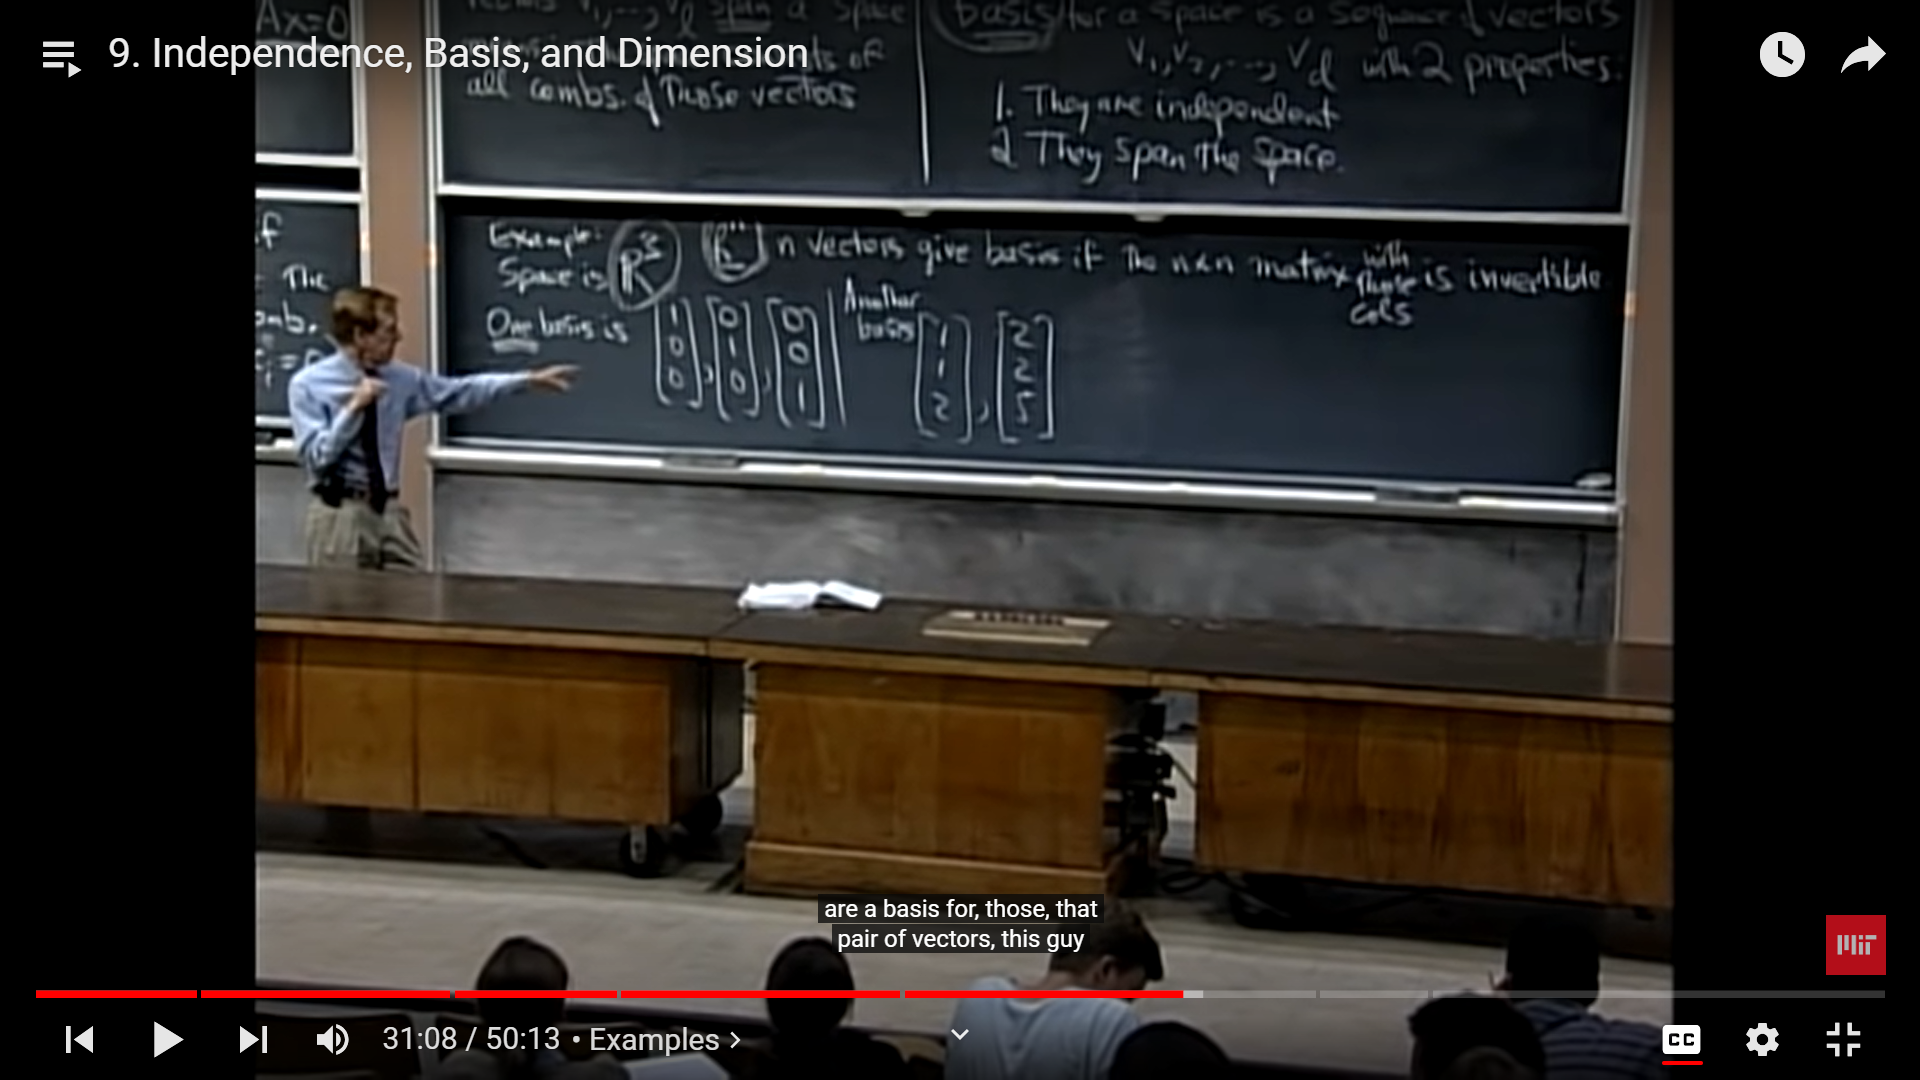 9. Independence, Basis, and Dimension
Ax=0
v1,..., vl span a space
all combs. of those vectors
basis for a space is a sequence of vectors
v1, v2, ..., vd with 2 properties:
1. They are independent
2 They span the space.
The
Example:
Space is R³
Rⁿ n vectors give basis if the n×n matrix with those cols is invertible
One basis is
[1 0 0], [0 1 0], [0 0 1]
Another basis
[1 1 2], [2 2 5]
are a basis for, those, that
pair of vectors, this guy
MIT
31:08 / 50:13 • Examples ›
CC